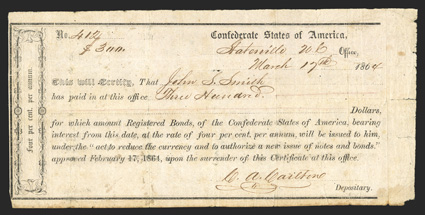 No. 412 Confederate States of America,
$ 300. Statesville N C Office,
March 17th 1864
This will Certify, That John T. Smith
has paid in at this office Three Hundred
Dollars,
for which amount Registered Bonds, of the Confederate States of America, bearing
interest from this date, at the rate of four per cent. per annum, will be issued to him,
under the "act to reduce the currency and to authorize a new issue of notes and bonds."
approved February 17, 1864, upon the surrender of this Certificate at this office.
C. A. Carlton
Depositary.
four per cent. per annum.